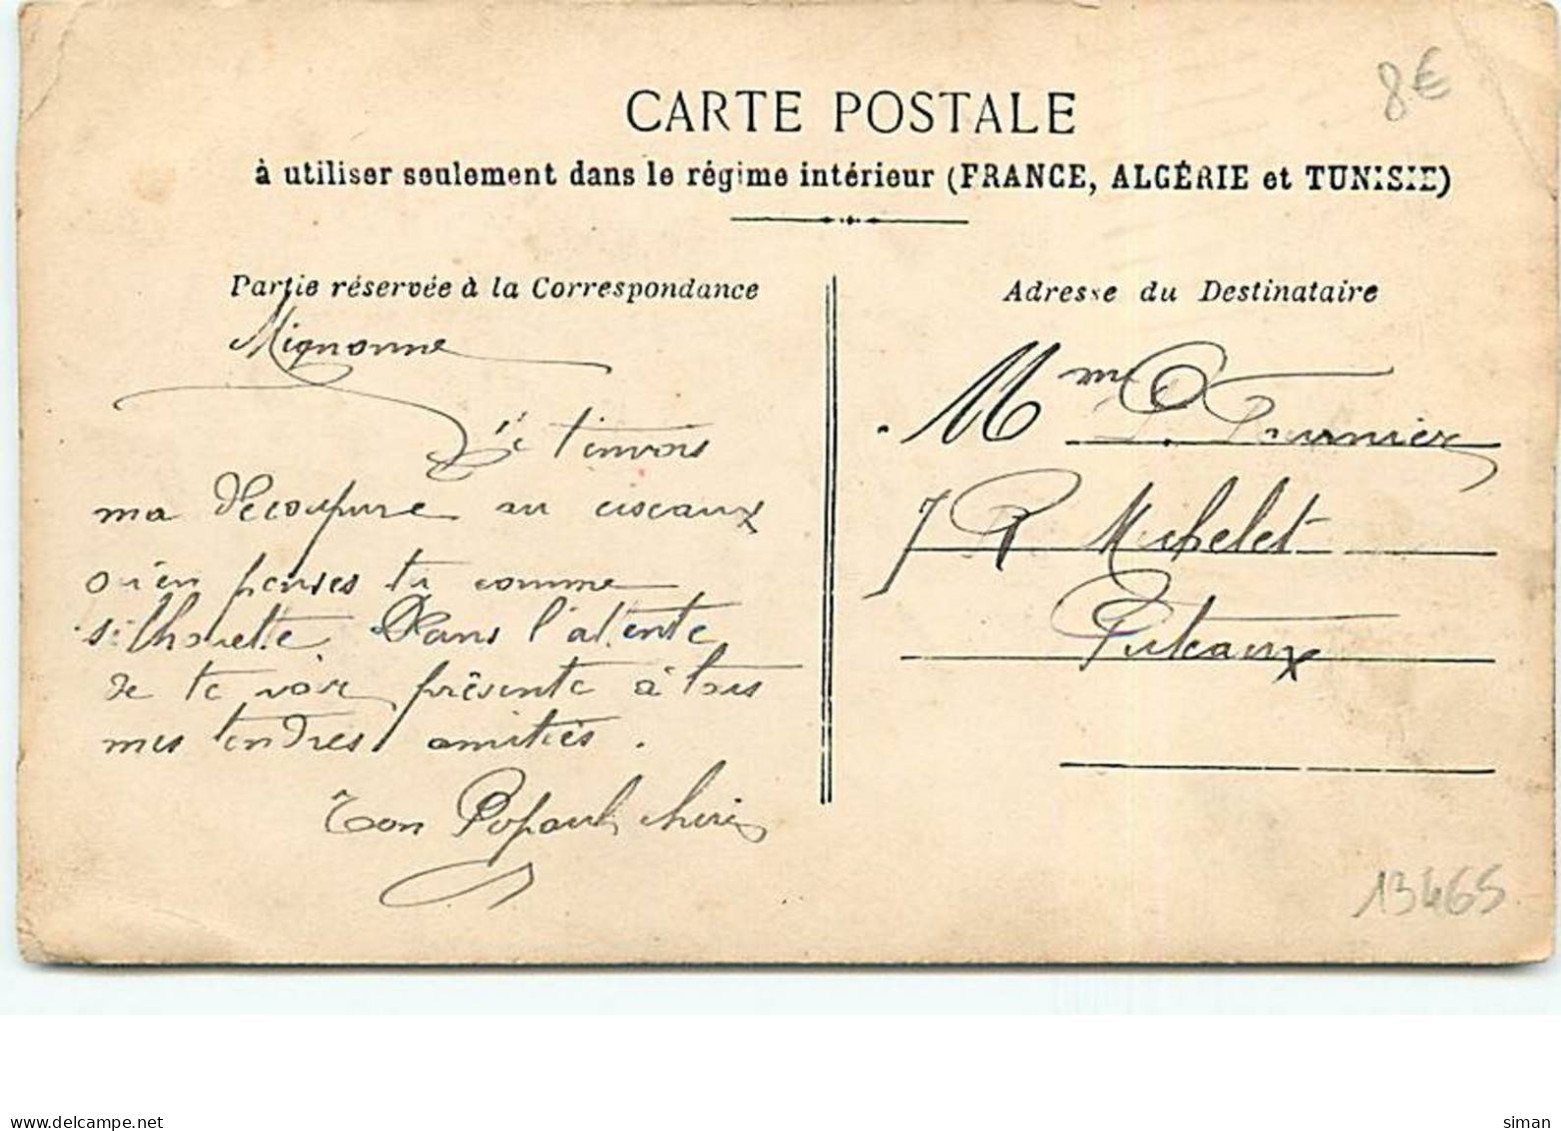 8€
CARTE POSTALE
à utiliser seulement dans le régime intérieur (FRANCE, ALGÉRIE et TUNISIE)
Partie réservée à la Correspondance
Mignonne
Je t'envois
ma découpure au ciseaux
qu'en penses tu comme
silhouette. Dans l'attente
de te voir présente à tous
mes tendres amitiés.
Ton Popaul chéri
Adresse du Destinataire
Mme Fournier
7 R Michelet
Puteaux
13465
www.delcampe.net
siman